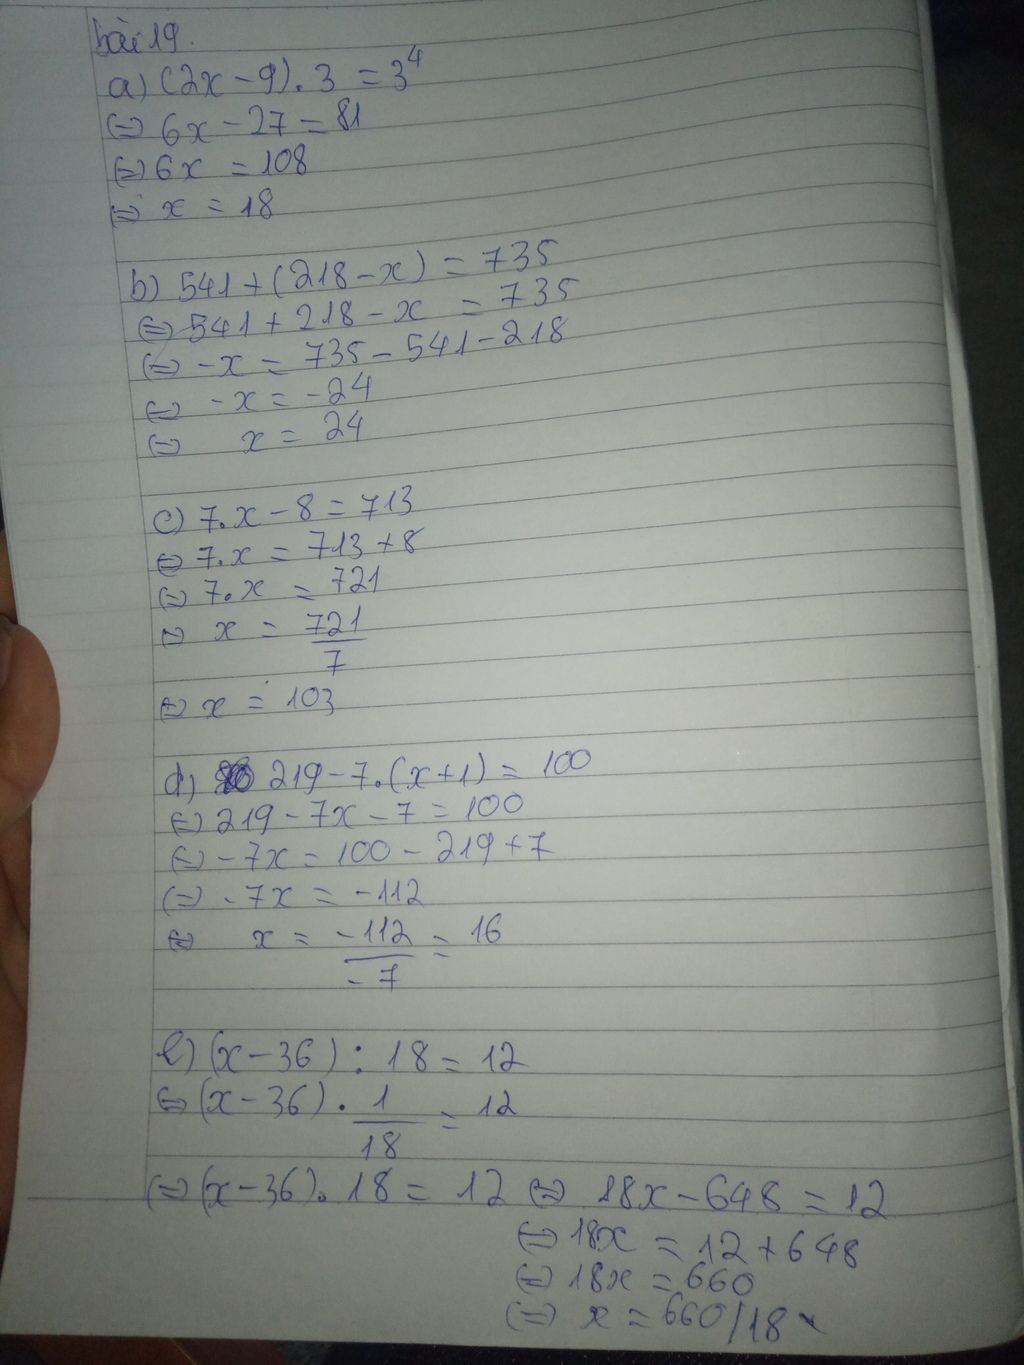 bài 19.
a) (2x - 9). 3 = 3⁴
(=) 6x - 27 = 81
(=) 6x = 108
(=) x = 18
b) 541 + (218 - x) = 735
(=) 541 + 218 - x = 735
(=) -x = 735 - 541 - 218
(=) -x = -24
(=) x = 24
c) 7.x - 8 = 713
(=) 7.x = 713 + 8
(=) 7.x = 721
(=) x = 721/7
(=) x = 103
d) 219 - 7.(x+1) = 100
(=) 219 - 7x - 7 = 100
(=) -7x = 100 - 219 + 7
(=) -7x = -112
(=) x = -112/-7 = 16
e) (x - 36) : 18 = 12
(=) (x - 36) . 1/18 = 12
(=) (x - 36). 18 = 12 (=) 18x - 648 = 12
(=) 18x = 12 + 648
(=) 18x = 660
(=) x = 660/18